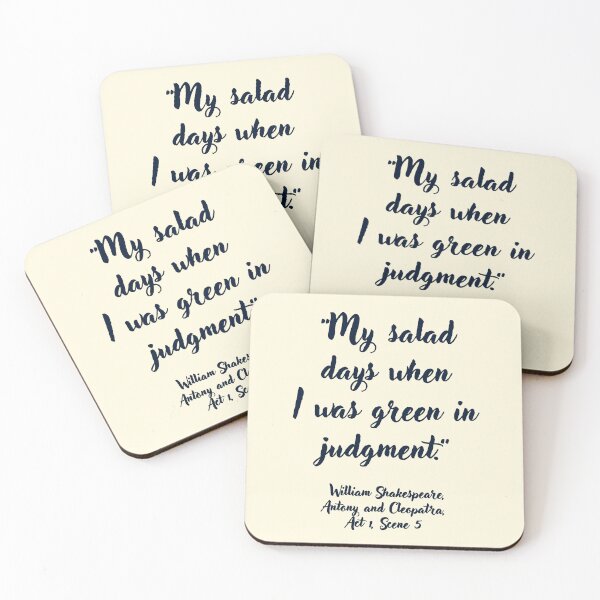 "My salad
days when
I was green in
"My salad
days when
I was green in
judgment."
"My salad
days when
I was green in
judgment."
William
Antony and
Act 1,
"My salad
days when
I was green in
judgment."
William Shakespeare,
Antony and Cleopatra,
Act 1, Scene 5